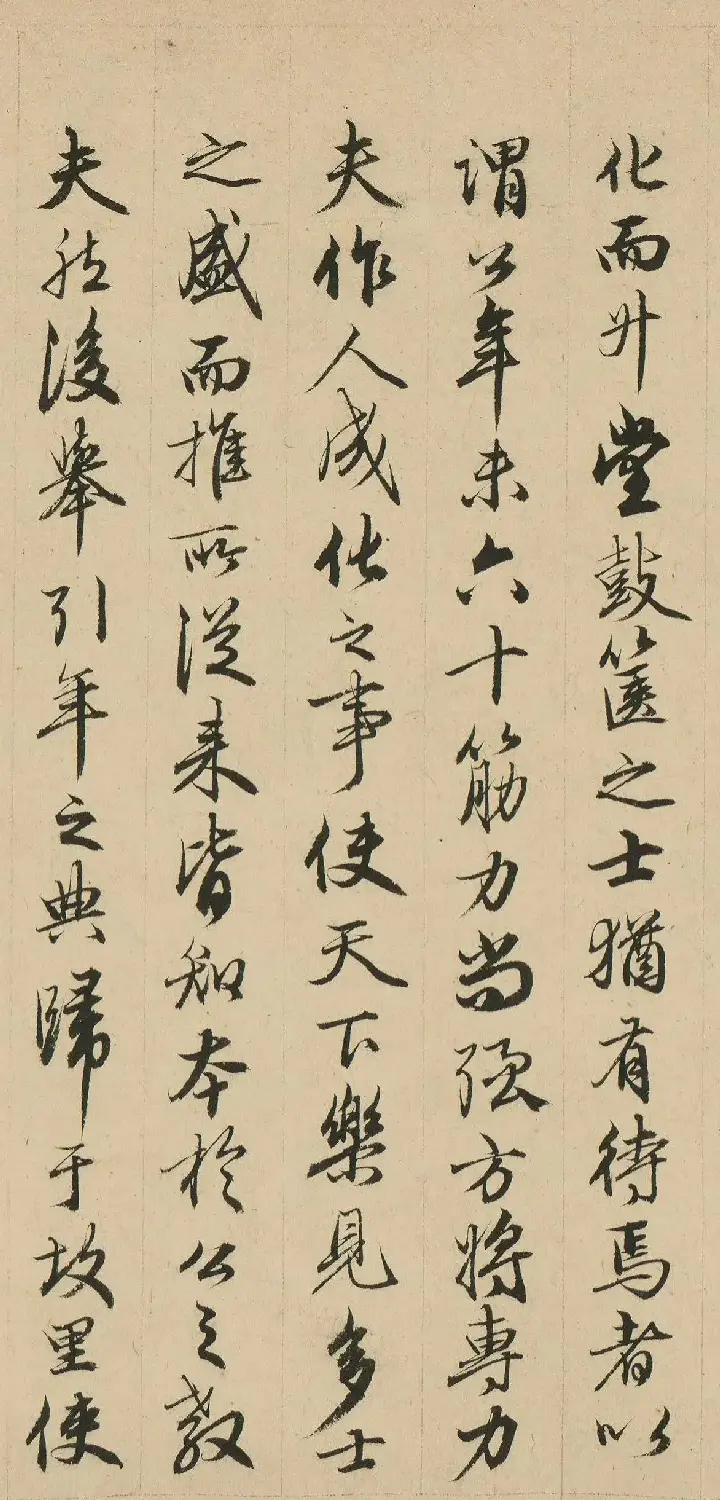 化而升堂鼓箧之士猶有待焉者以
謂公年未六十筋力尚强方將專力
夫作人成化之事使天下樂見多士
之盛而推所從来皆知本於公之教
夫然後舉引年之典歸于故里使